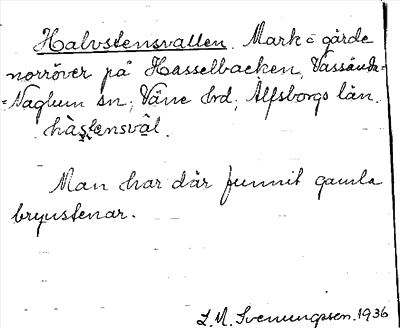 Halvstensvallen. Mark = gärde
norröver på Hasselbacken, Vassända-
=Naglum sn; Väne hrd; Älfsborgs län.
hàstensvâl.
Man har där funnit gamla
brynstenar.
L. M. Svenungsson. 1936